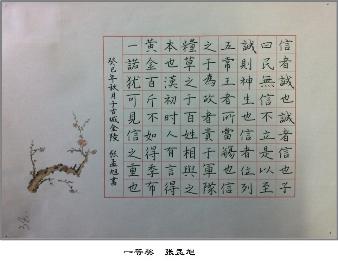 信者誠也誠者信也子
曰民無信不立是以至
誠則神生也信者位列
五常王者所當也信
之于為政者貴于軍隊
糧草之于百姓相與之
本也漢初时人有言得
黃金百斤不如得季布
一諾犹可見信之重也
癸巳年秋月于古城金陵 张孟旭書
一等奖 张孟旭